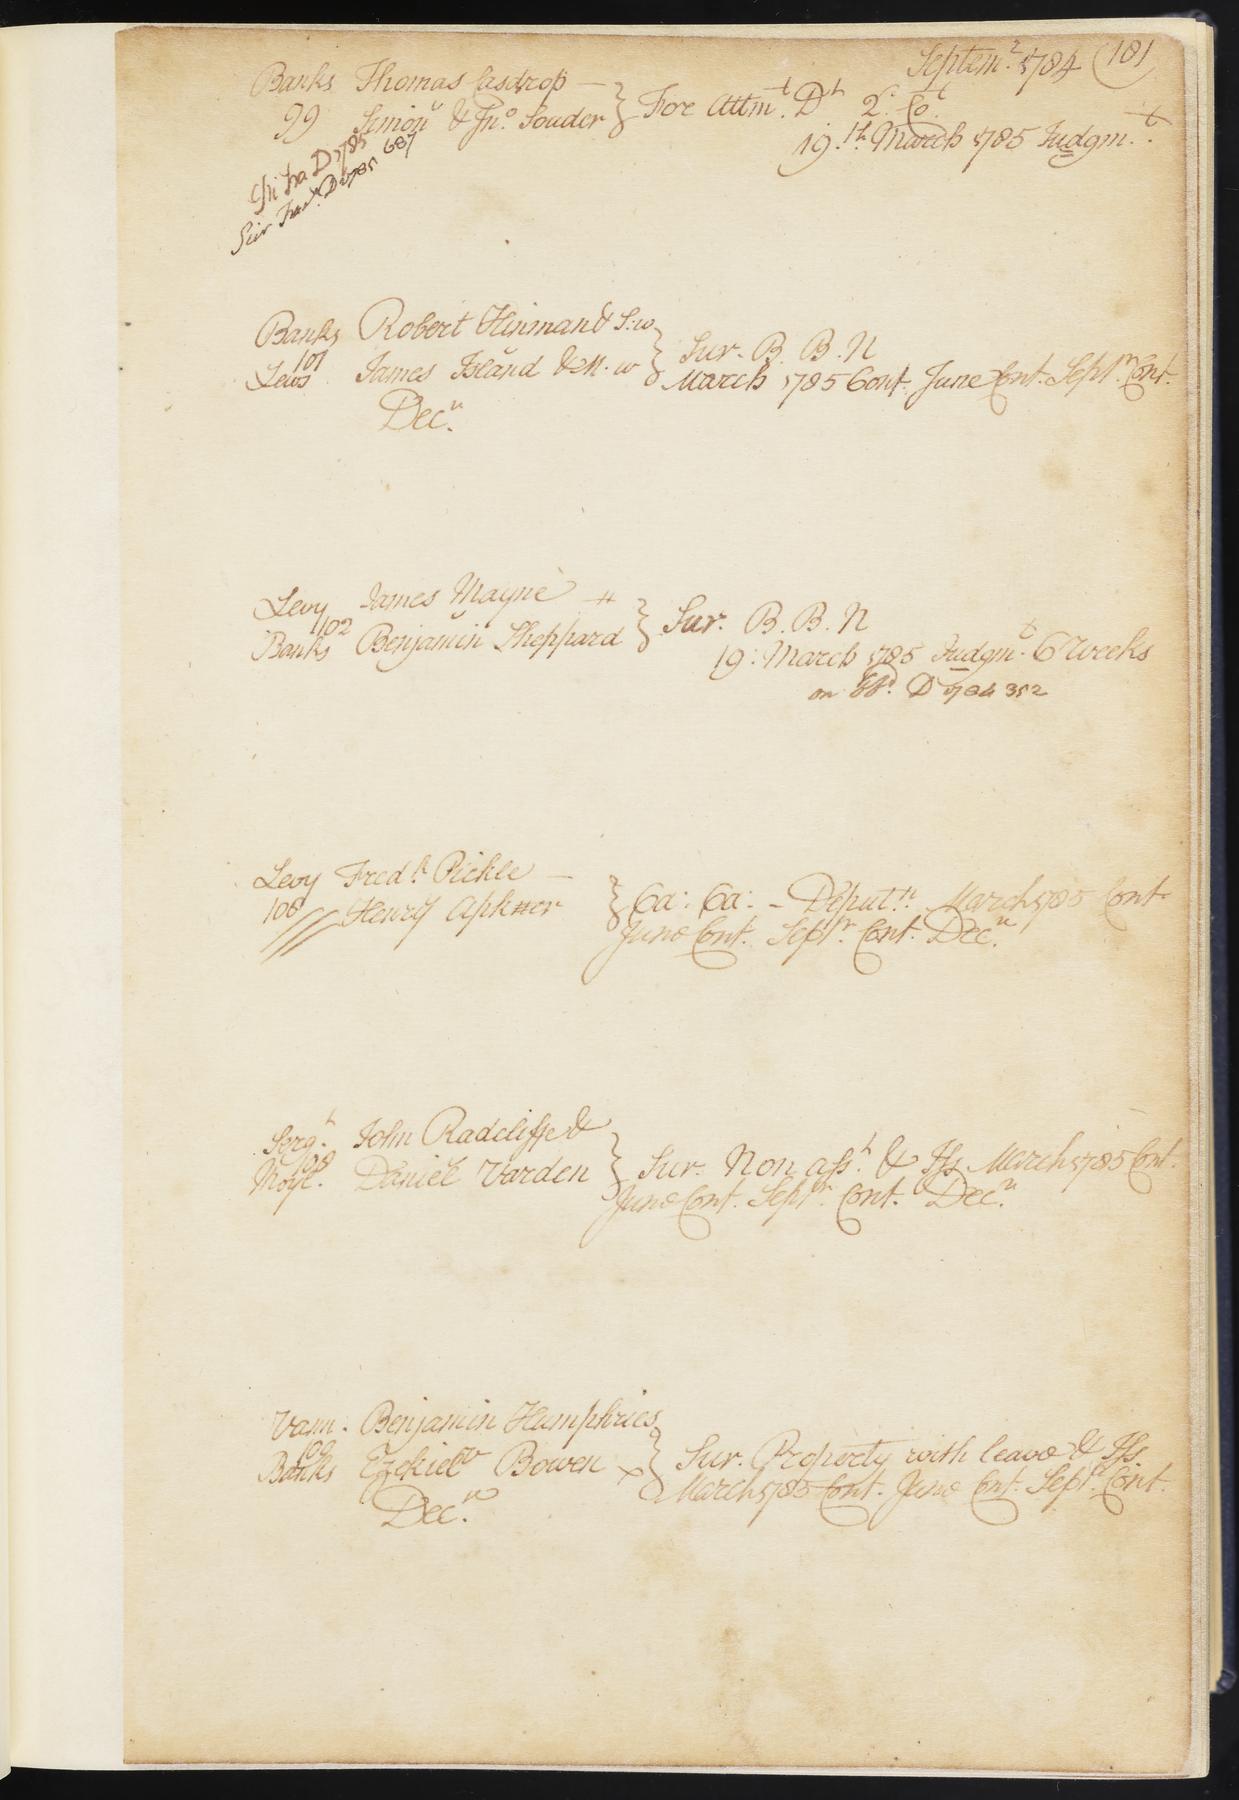 Septem.r 1784 (181)
Banks Thomas Casdrop —
99 Simon & Jn.o Souder } Fore Attm.t D.t 2.
19.th March 1785 Judgm.t
Banks Robert Hinman & S:w
107
Lews James Island & M. w } Sur. B. B. N
March 1785 Cont. June Cont. Septr. Cont.
Dec.n
Levy James Mayne
102
Banks Benjamin Sheppard } Sur. B. B. N
19: March 1785 Judgm.t 6 weeks
on D 1784 352
Levy Fred.k Pickle —
108 Henry Apkner } Ca: Ca: - Deput.n March 1785 Cont.
June Cont. Septr. Cont. Dec.n
Serg.t John Radcliffe &
108
Moyl. Daniel Varden } Sur. Non ass.t & Iss March 1785 Cont.
June Cont. Septr. Cont. Dec.n
Vann. Benjamin Humphries
109
Banks Ezekiel Bowen × } Sur. Property with leave & Iss.
March 1785 Cont. June Cont. Septr. Cont.
Dec.n